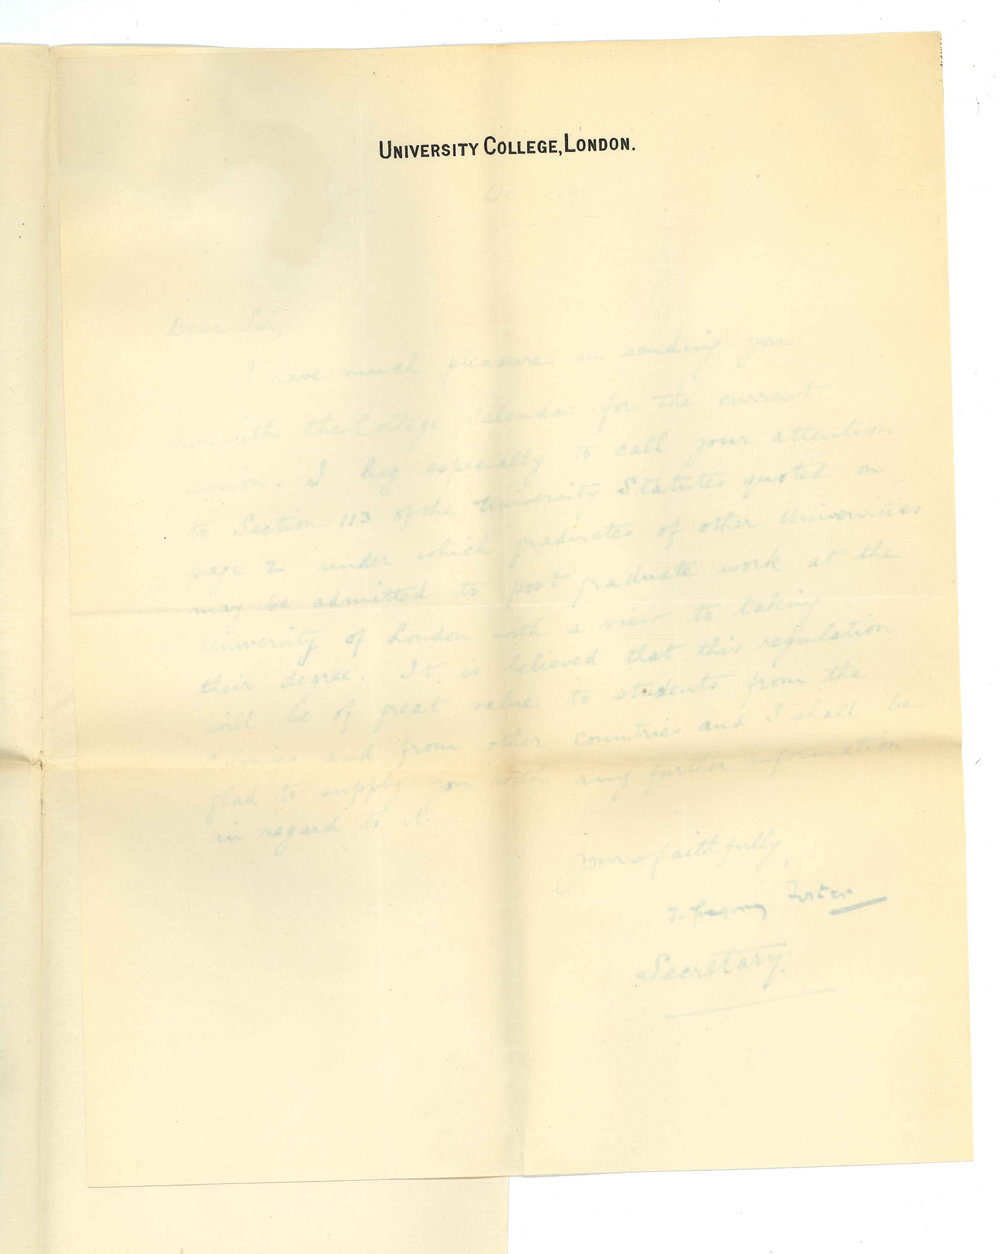 UNIVERSITY COLLEGE, LONDON.
1902
Dear Sir,
I have much pleasure in sending you
herewith the College Calendar for the current
session. I beg especially to call your attention
to Section 113 of the University Statutes quoted on
page 2 under which graduates of other Universities
may be admitted to post graduate work at the
University of London with a view to taking
their degree. It is believed that this regulation
will be of great value to students from the
Colonies and from other countries and I shall be
glad to supply you with any further information
in regard to it.
Yours faithfully,
T. Gregory Foster
Secretary.